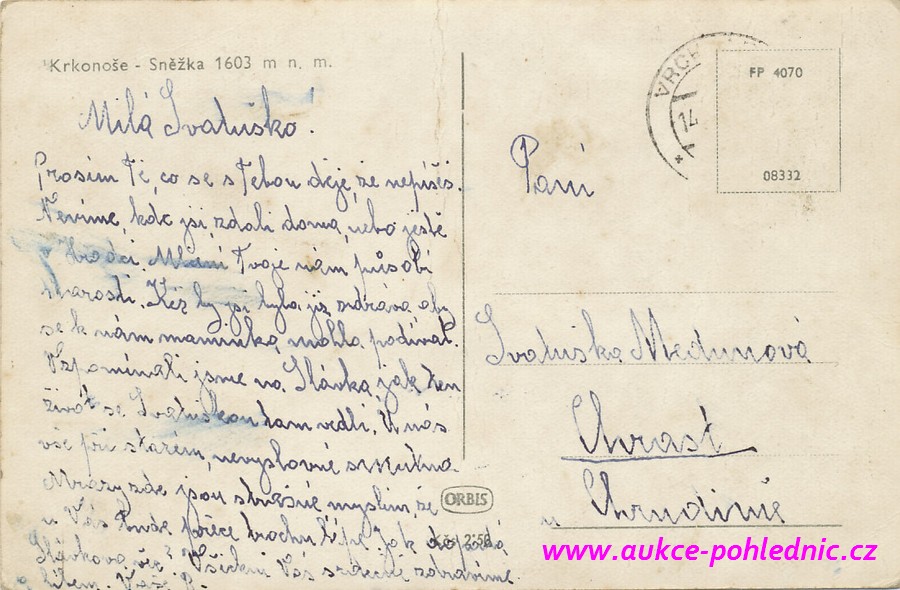 Krkonoše - Sněžka 1603 m n. m.
Milá Svatuško.
Prosím Tě, co se s Tebou děje, že nepíšeš.
Nevíme, kde jsi, zdali doma, nebo ještě
v Hradci. Tvoje nám působí
starosti. Kéž by jsi byla již zdráva, aby
se k nám maminka mohla podívat.
Vzpomínali jsme na Slávka, jak ten
život se Svatuškou tam vedli. U nás
vše při starém, nevýslovně smutno.
Mrazy zde jsou strašné myslím, že
u Vás bude přece trochu lépe. Jak dopadá
Slávkova věc? Všichni Vás srdečně zdravíme.
VRCH
14
FP 4070
08332
Paní
Svatuška Medunová
Chrast
u Chrudimě
ORBIS
Kčs 2·50
www.aukce-pohlednic.cz